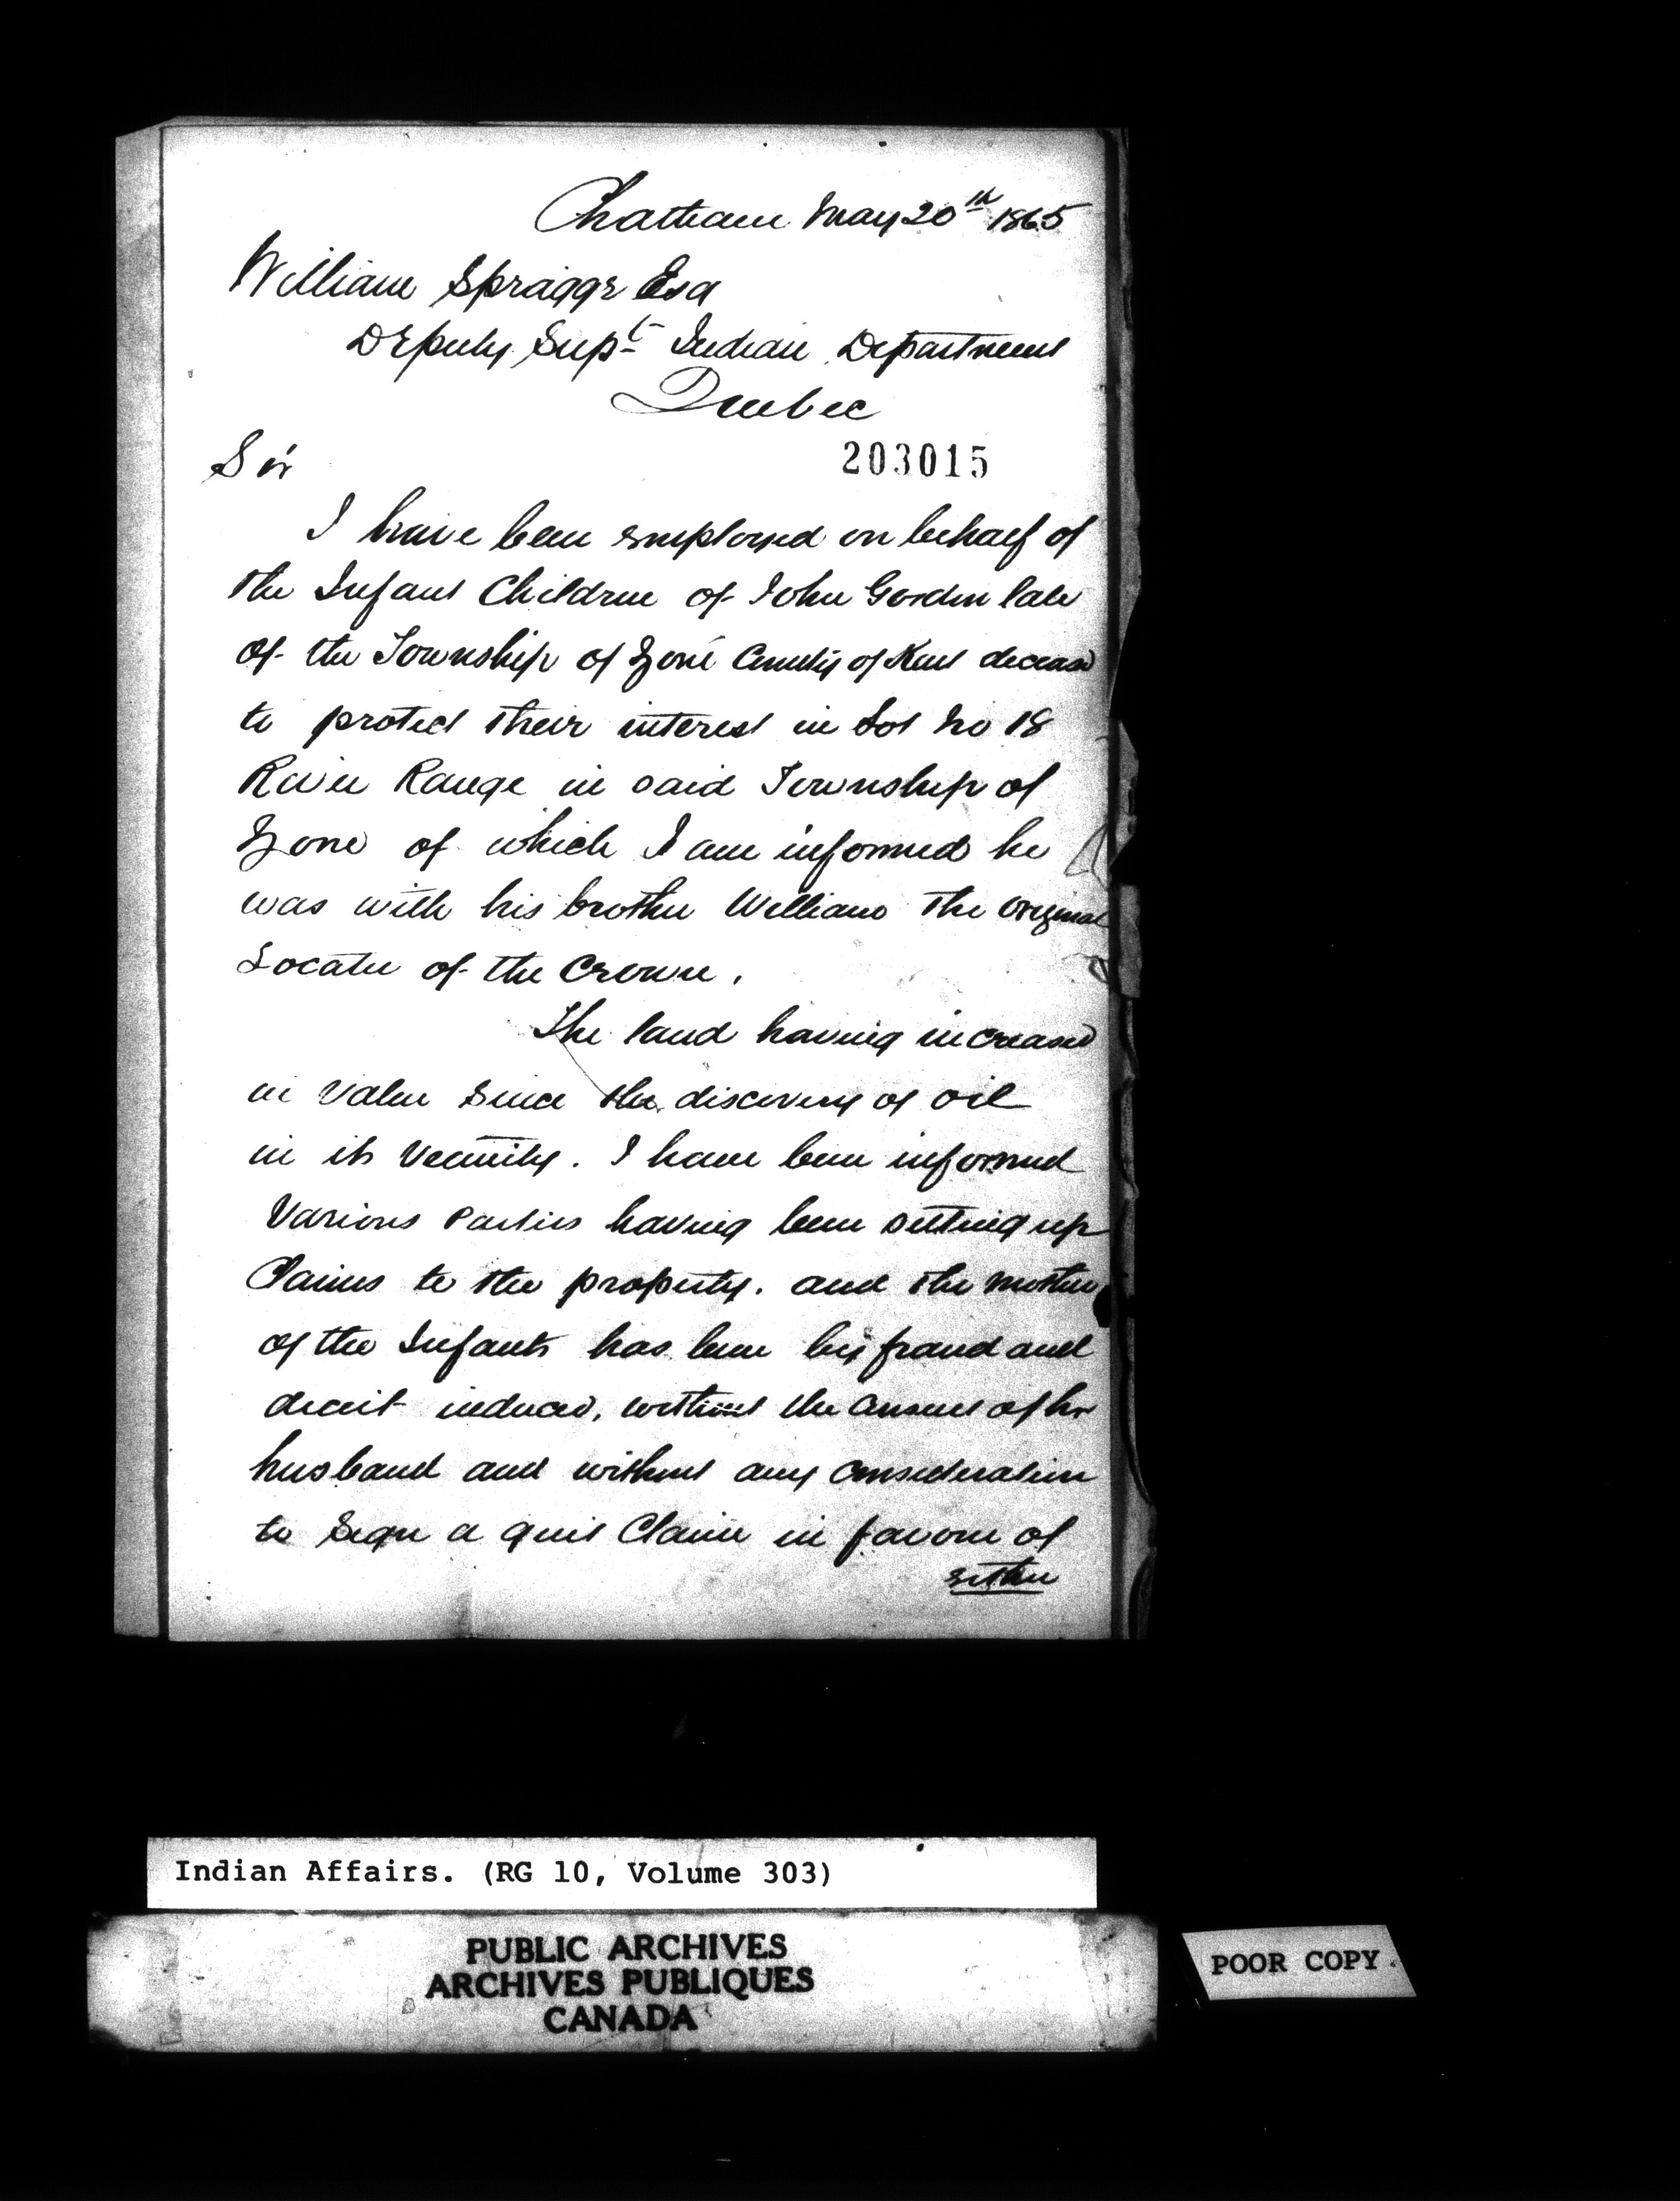 Chatham May 20th 1865
William Spragge Esq
Deputy Supt Indian Department
Quebec
203015
Sir
I have been employed on behalf of
the Infant Children of John Gordon late
of the Township of Zone County of Kent deceased
to protect their interest in Lot No 18
River Range in said Township of
Zone of which I am informed he
was with his brother William the original
Locatee of the Crown.
The land having increased
in value since the discovery of oil
in its vicinity. I have been informed
Various parties having been setting up
Claims to the property. and the mother
of the Infants has been by fraud and
deceit induced, without the consent of her
husband and without any consideration
to sign a quit Claim in favour of
either
Indian Affairs. (RG 10, Volume 303)
PUBLIC ARCHIVES
ARCHIVES PUBLIQUES
CANADA
POOR COPY.